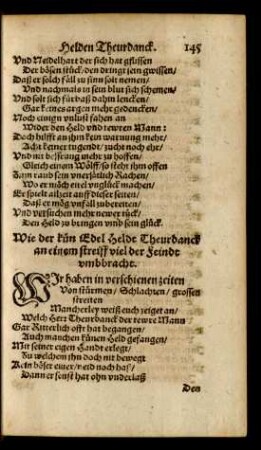 Helden Theurdanck. 145
Vnd Neidelhart der sich hat gflissen
Der bösen stück / den dringt sein gwissen /
Daß er solch fäll zu sinn solt nemen /
Vnd nachmals in sein blut sich schemen /
Vnd solt sich fürbaß dahin lencken /
Gar keines argen mehr gedencken /
Noch einign vnlust fahen an
Wider den Held vnd tewren Mann:
Doch hilfft an ihn kein warnung mehr /
Acht keiner tugendt / zucht noch ehr /
Vnd nit bessrung mehr zu hoffen /
Gleich einem Wölff / so steht ihm offen
Zum raub sein vnersätlich Rachen /
Wo er möch ein vnglück machen /
Er spielt allzeit auff dieser seiten /
Daß er mög vnfall zubereiten /
Vnd versuchen mehr newer tück /
Den Held zu bringen vmb sein glück.
Wie der kün Edel Heldt Theurdanck
an einem streiff viel der Feindt
vmbbracht.
WIr haben in verschienen zeiten
Von stürmen / Schlachten / grossen
streiten
Mancherley weiß euch zeiget an /
Welch Herr Theurdanck der tewre Mann
Gar Ritterlich offt hat begangen /
Auch manchen künen Held gefangen /
Mit seiner eigen Handt erlegt /
Zu welchem ihn doch nit bewegt
Kein böser eiuer / neid noch haß /
Dann er sonst hat ohn vnderlaß
Den